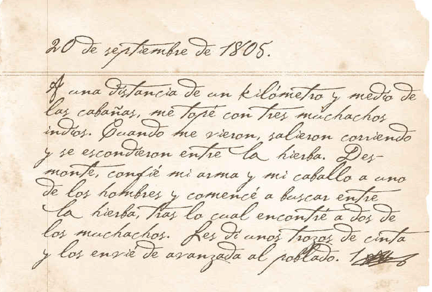 20 de septiembre de 1805.
A una distancia de un kilómetro y medio de
las cabañas, me topé con tres muchachos
indios. Cuando me vieron, salieron corriendo
y se escondieron entre la hierba. Des-
monté, confié mi arma y mi caballo a uno
de los hombres y comencé a buscar entre
la hierba, tras lo cual encontré a dos de
los muchachos. Les di unos trozos de cinta
y los envié de avanzada al poblado.